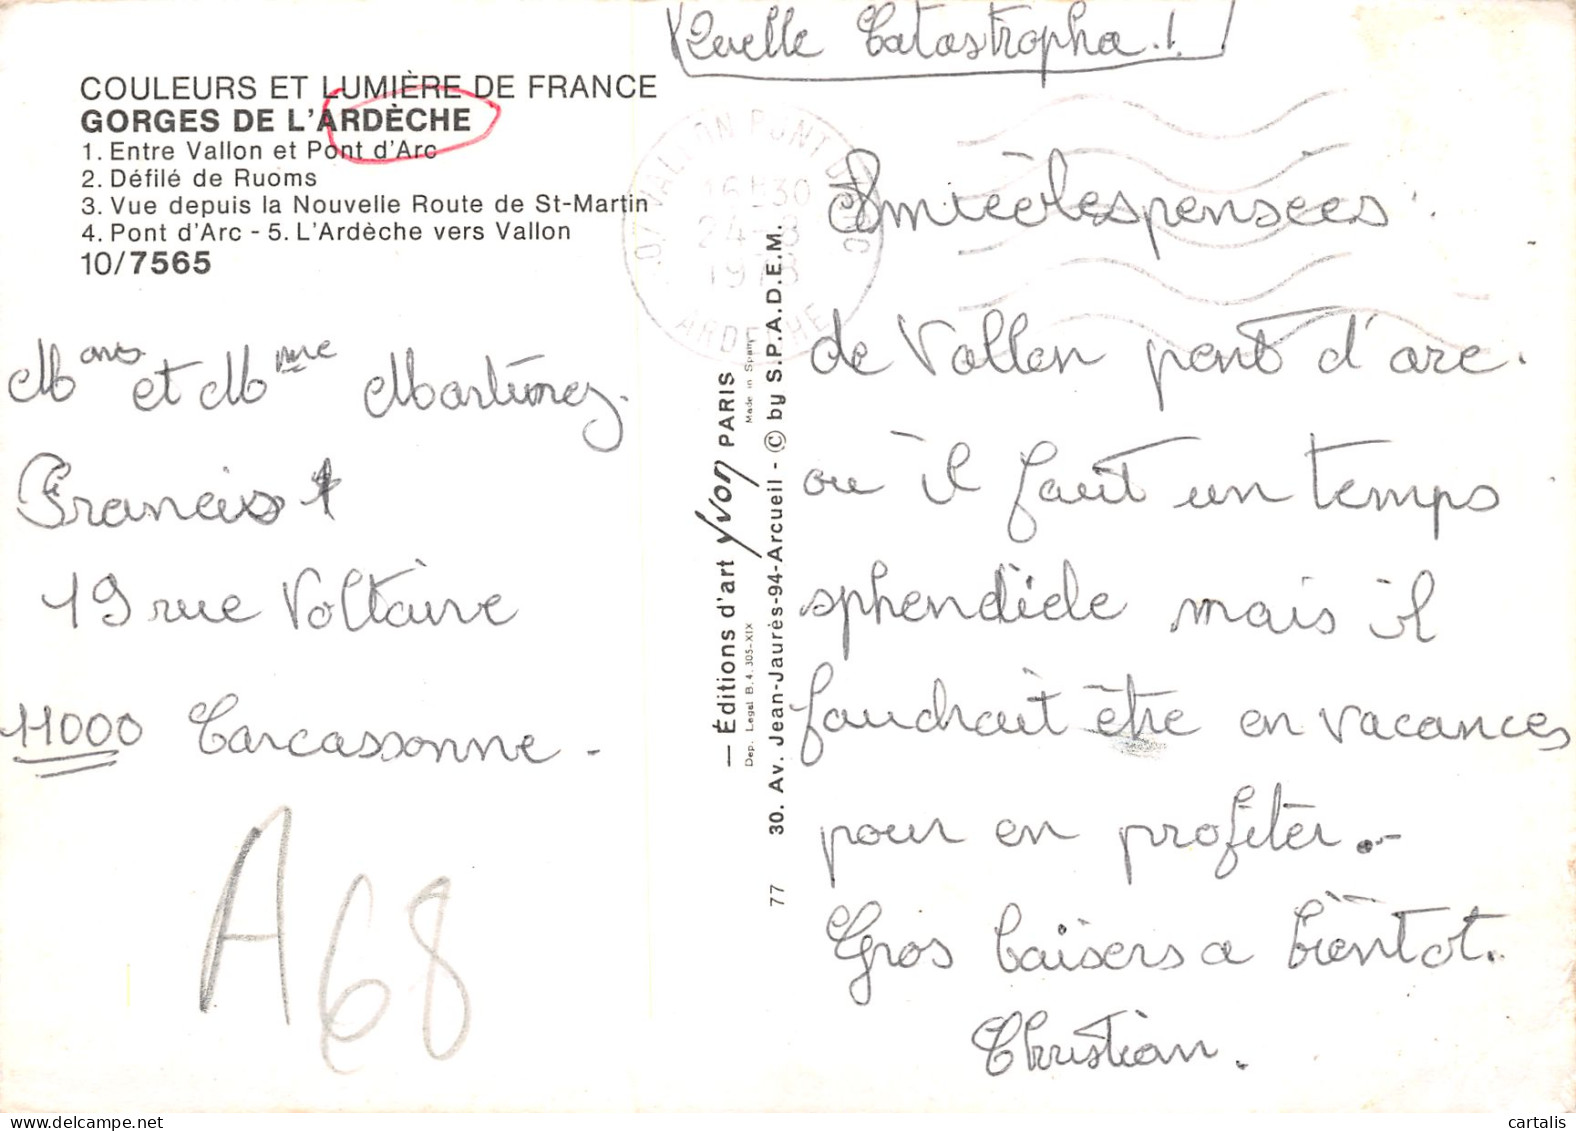 Quelle Catastropha.!
COULEURS ET LUMIÈRE DE FRANCE
GORGES DE L'ARDÈCHE
1. Entre Vallon et Pont d'Arc
2. Défilé de Ruoms
3. Vue depuis la Nouvelle Route de St-Martin
4. Pont d'Arc - 5. L'Ardèche vers Vallon
10/7565
07 VALLON PONT D'ARC
16H30
24-8
1978
ARDECHE
et Mme Martinez.
Francis
19 rue Voltaire
11000 Carcassonne -
A68
— Éditions d'art Yvon PARIS
Dep. Legal B.4.305-XIX
Made in Spain
30. Av. Jean-Jaurès-94-Arcueil - © by S.P.A.D.E.M.
77
Amicales pensées
de Vallon pont d'arc.
où il fait un temps
sphendide mais il
faudrait être en vacances
pour en profiter.-
Gros baisers a bientot.
Christian.
cartalis